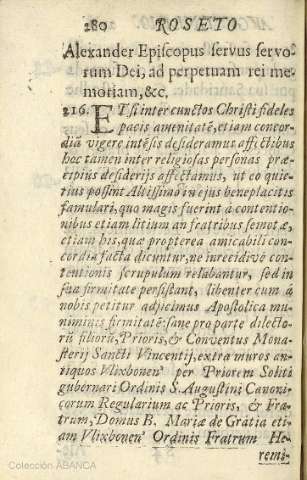 280 ROSETO
Alexander Episcopus servus servo
rum Dei, ad perpetuam rei me-
moriam, &c.
216. ETsi inter cunctos Christi fideles
pacis amenitatē, etiam concor-
diā vigere intēsis desideramus affectibus
hoc tamen inter religiosas personas præ-
cipiùs desiderijs affectamus, ut eo quie-
tius possint Altissimo in ejus beneplacitis
famulari, quo magis fuerint à contentio-
nibus etiam litium an fratribus semotæ,
etiam his, qua propterea amicabili con-
cordia facta dicuntur, ne inrecidivō con-
tentionis scrupulum relabantur, sed in
sua firmitate persistant, libenter cum à
nobis petitur adjicimus Apostolica mu-
niminis firmitatē: sane pro parte dilecto-
rū filiorū, Prioris, & Conventus Mona-
sterij Sancti Vincentij, extra muros an-
tiquos Vlixbonen' per Priorem Soliti
gubernari Ordinis S. Augustini Canoni-
corum Regularium ac Prioris, & Fra-
trum, Domus B. Mariæ de Grátia eti-
am Vlixbonen' Ordinis Fratrum He-
remi-
Colección ABANCA